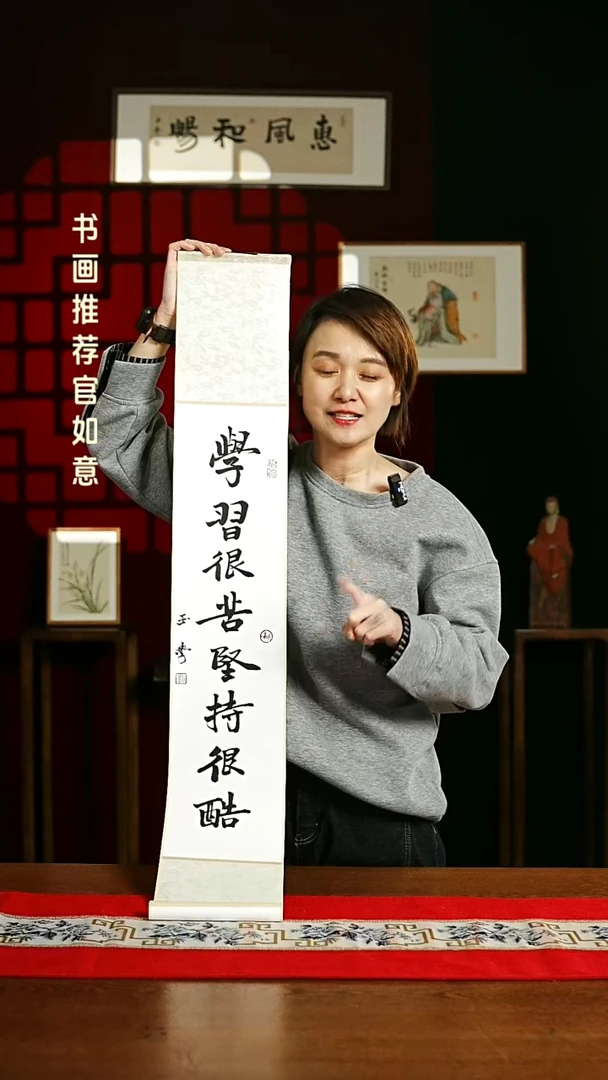 惠風和暢
书画推荐官如意
學習很苦堅持很酷